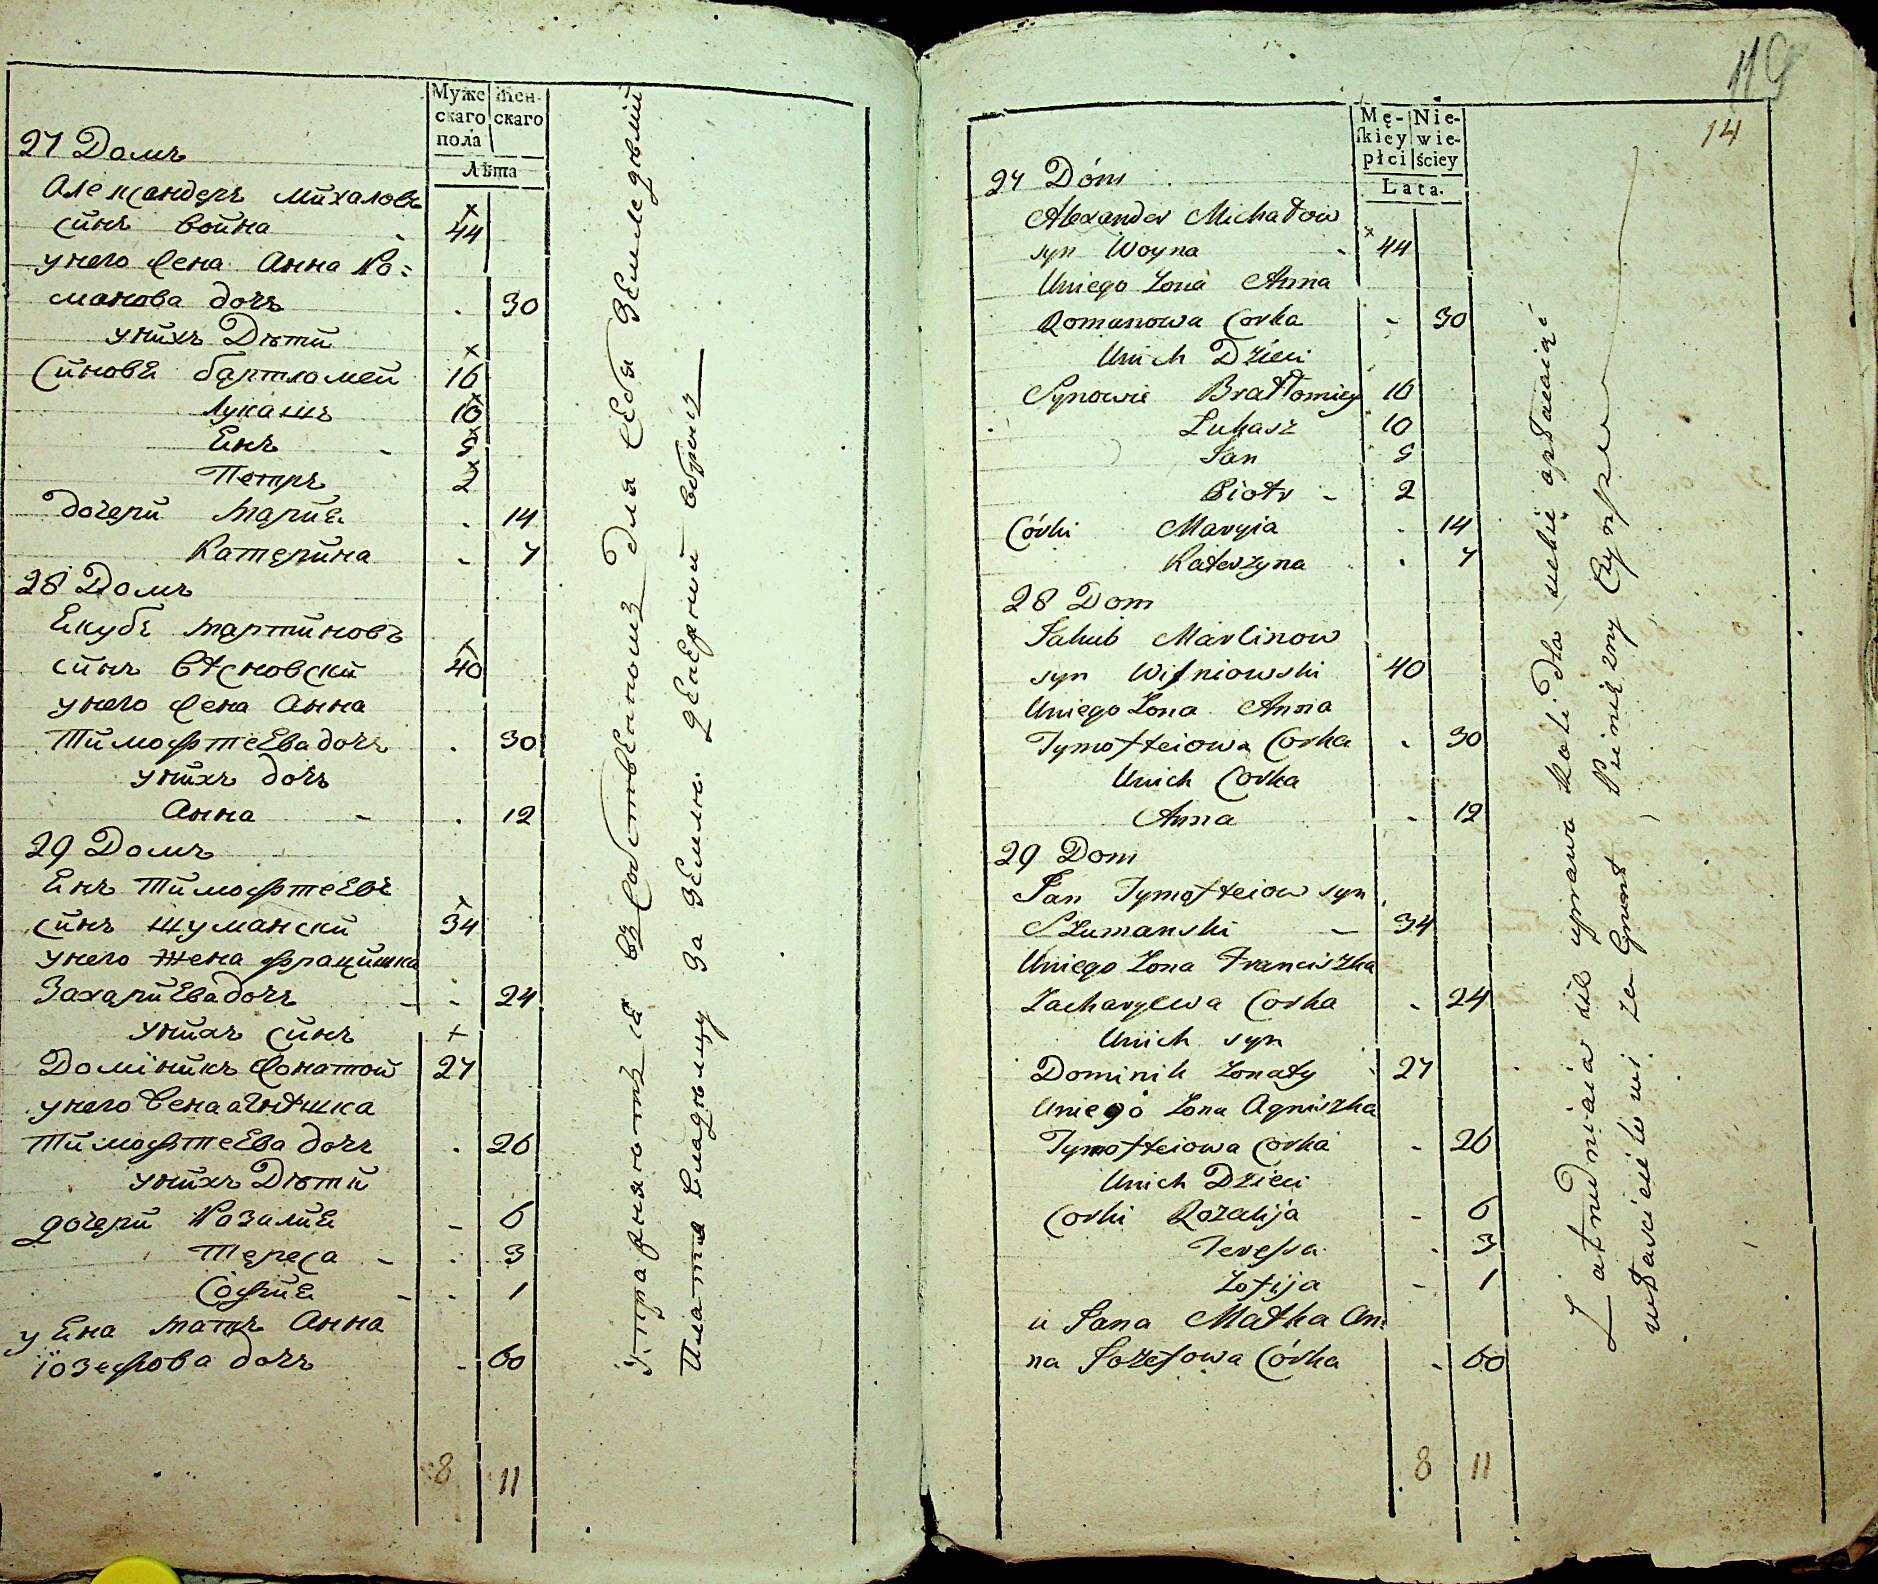 Муже
скаго
пола
Жен-
скаго
Лѣта
27 Домъ
Александеръ Михаловъ
синъ Война 44
у него Жена Анна Ро=
манова дочъ 30
у нихъ Дѣти
Синове Бартломей 16
Лукашъ 10
Енъ 5
Петръ 2
дочери Марие 14
Катерина 7
28 Домъ
Екубъ Мартиновъ
синъ Вѣсновски 40
у него Жена Анна
Тимофтеева дочъ 30
у нихъ дочъ
Анна 12
29 Домъ
Енъ Тимофтеевъ
синъ Шумански 34
у него Жена Францишка
Захариева дочъ 24
у нихъ синъ
Доминикъ Жонатой 27
у него Жена Агнѣшка
Тимофтеева дочъ 26
у нихъ Дѣти
дочери Розалие 6
Тереса 3
Софие 1
у Ена матъ Анна
Іозефова дочъ 60
8 11
въ Собственномъ для себя Земледѣлии
Платя Владѣльцу за Землю денежный
119
14
Mę-
skiey
płci
Nie-
wie-
ściey
Lata.
27 Dóm
Alexander Michałow
syn Woyna 44
Uniego Zona Anna
Romanowa Corka 30
Unich Dzieci
Synowie Bratłomiey 16
Łukasz 10
Jan 5
Piotr 2
Córki Maryia 14
Katerzyna 7
28 Dom
Jakub Marcinow
syn Wiśniowski 40
Uniego Zona Anna
Tymofteiowa Corka 30
Unich Corka
Anna 12
29 Dom
Jan Tymofteiow syn
Szumanski 34
Uniego Zona Franciszka
Zacharyewa Corka 24
Unich syn
Dominik Zonaty 27
Uniego Zona Agniszka
Tymofteiowa Corka 26
Unich Dzieci
Corki Rozalija 6
Teressa 3
Zofija 1
u Jana Matka An
na Jozefowa Córka 60
8 11
Zatrudniaia sie uprawa Roli dla siebie opłacaiąc
włascicielowi za Grunt Pieniezny Czynsz